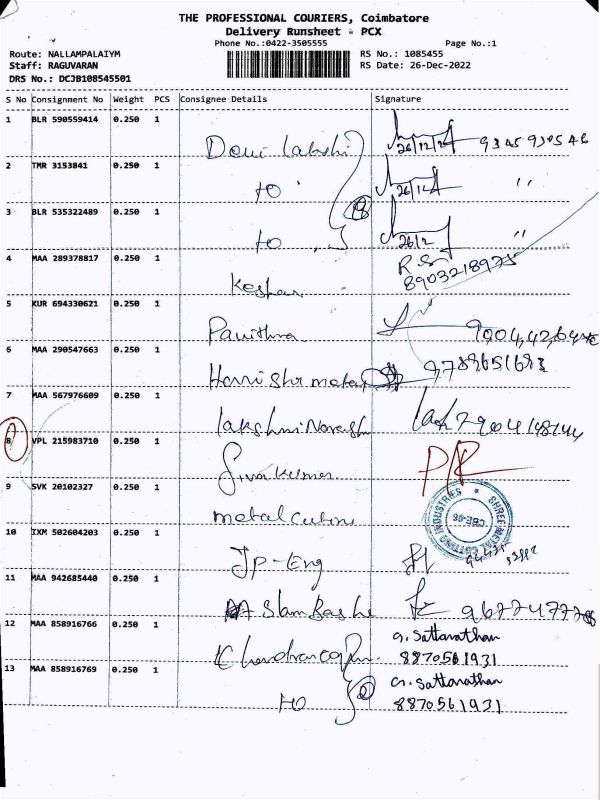 THE PROFESSIONAL COURIERS, Coimbatore
Delivery Runsheet - PCX
Phone No.:0422-3505555 Page No.:1
Route: NALLAMPALAIYM RS No.: 1085455
Staff: RAGUVARAN RS Date: 26-Dec-2022
DRS No.: DCJB108545501
S No Consignment No Weight PCS Consignee Details Signature
1 BLR 590559414 0.250 1
26/12/22
2 TMR 3153841 0.250 1
to 26/12 "
3 BLR 535322489 0.250 1
to 26/12 "
4 MAA 289378817 0.250 1
Keshav 8903218975
5 KUR 694330621 0.250 1
Pavithra
6 MAA 290547663 0.250 1
7 MAA 567976609 0.250 1
Lakshmi Naresh
8 VPL 215983710 0.250 1
Sivakumar P/R
9 SVK 20102327 0.250 1
metal cutting
SHREE METAL CUTTING INDUSTRIES
CBE-06
10 IXM 502604203 0.250 1
Jp-Eng
11 MAA 942685440 0.250 1
12 MAA 858916766 0.250 1
G. Sattanathan
8870561931
13 MAA 858916769 0.250 1
to G. Sattanathan
8870561931